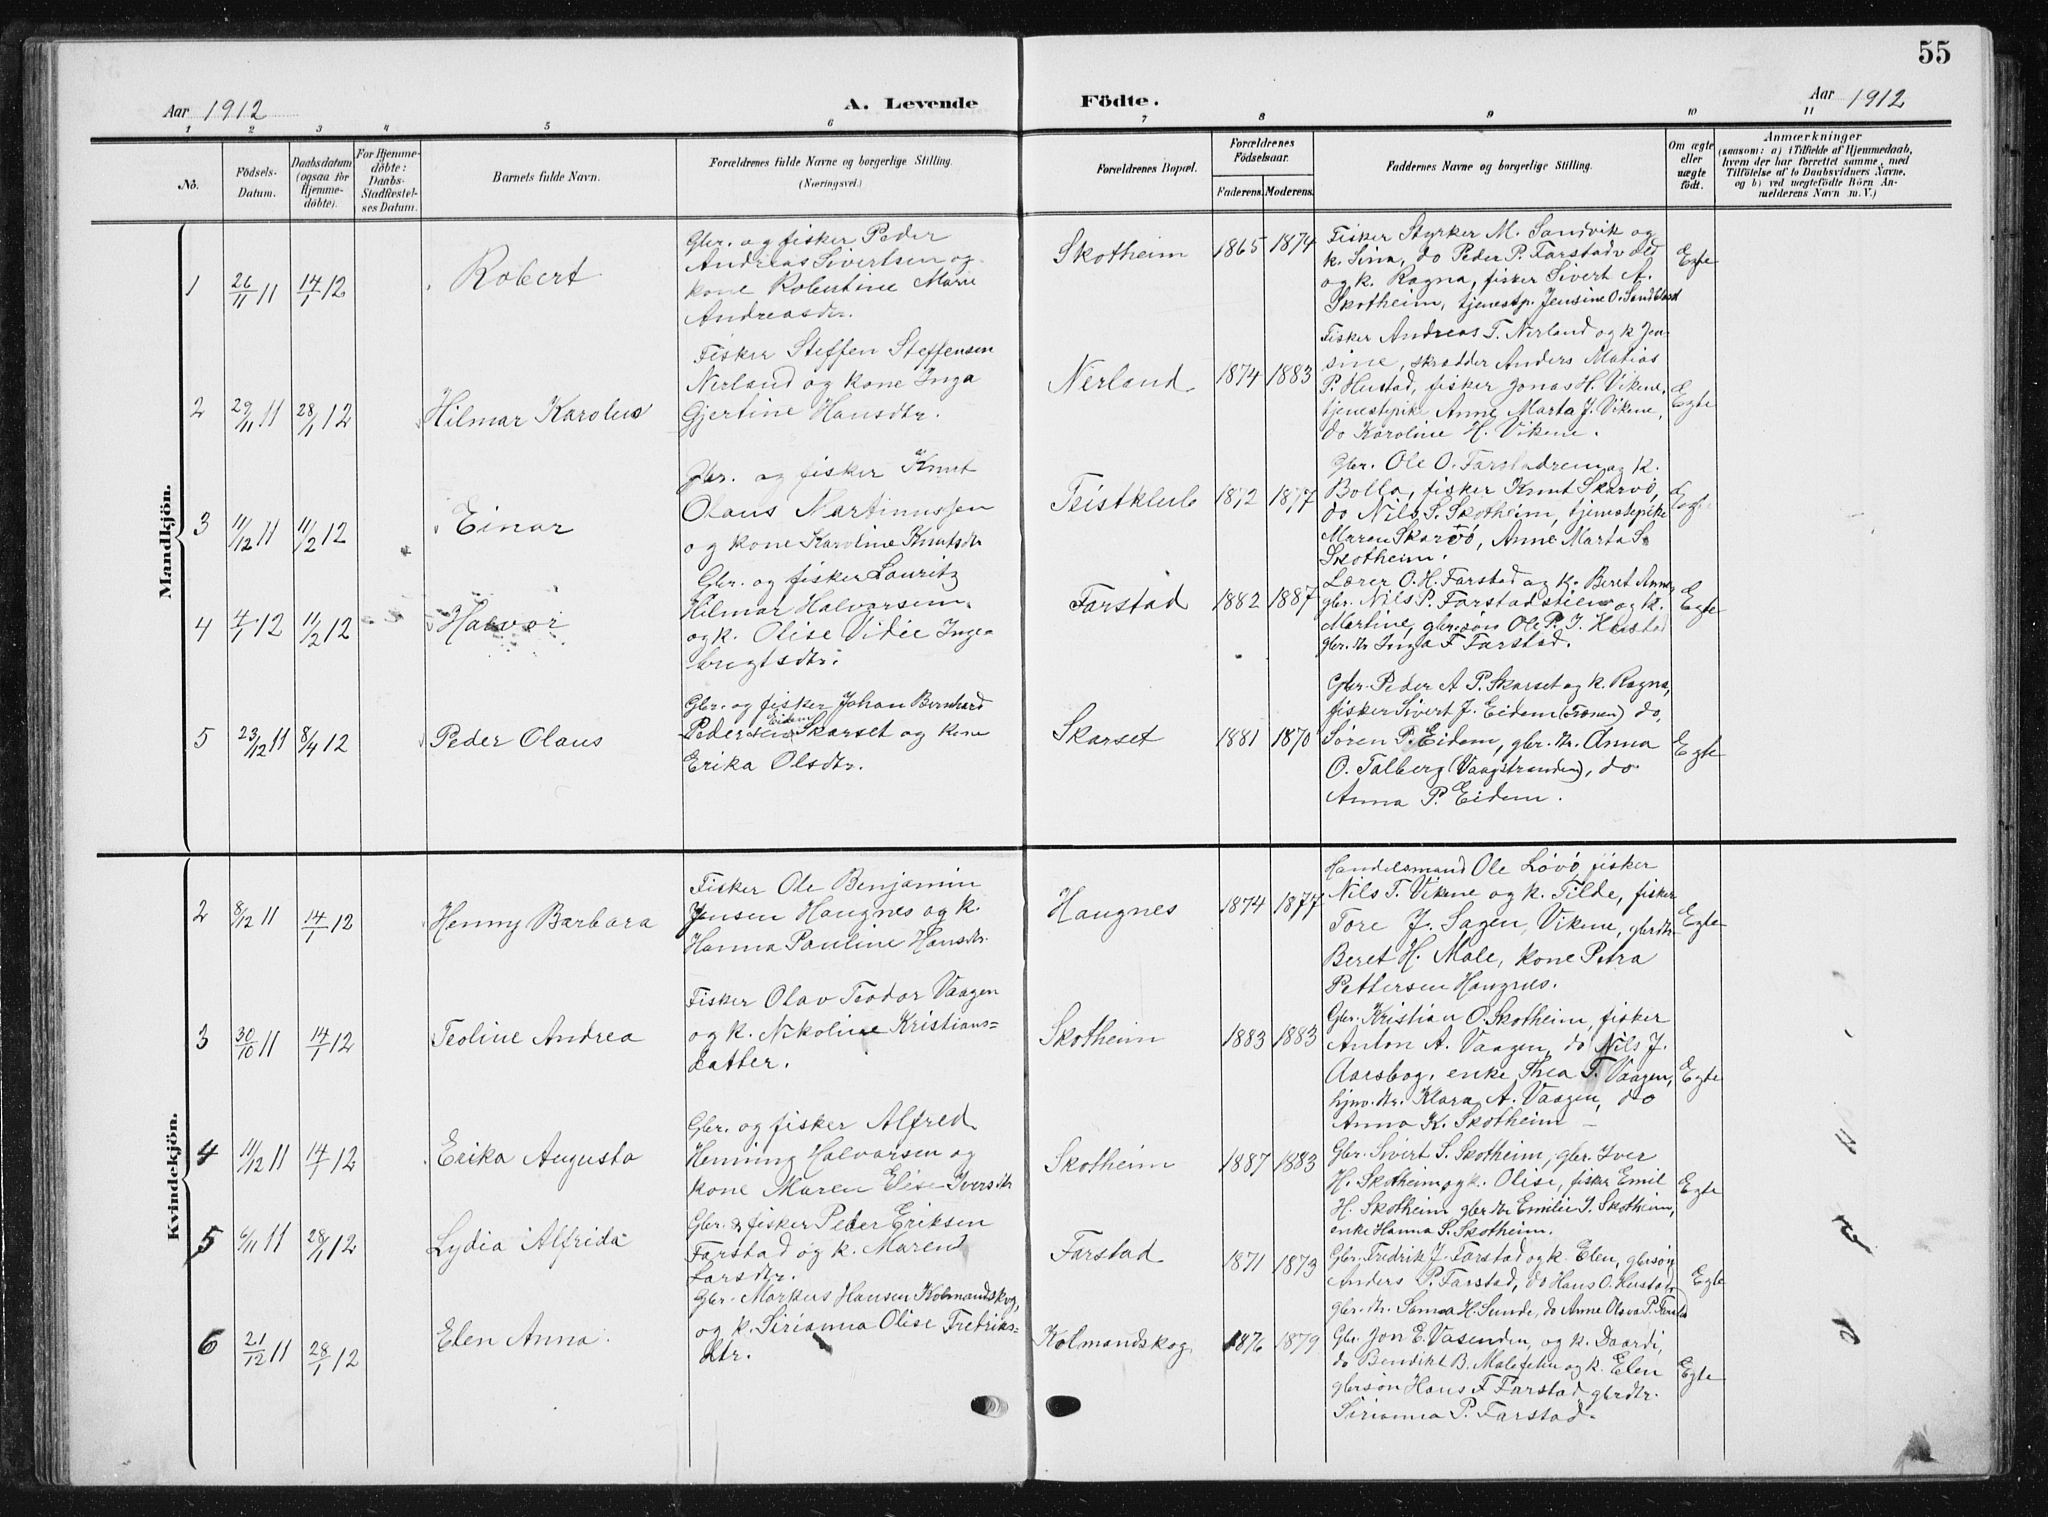 55
Aar 1912
A. Levende
Födte.
Aar 1912
1 2 3 4 5 6 7 8 9 10 11
No.
Födsels-
Datum.
Daabsdatum
(ogsaa for
Hjemme-
döbte).
For Hjemme-
döbte:
Daabs-
Stadfæstel-
ses Datum.
Barnets fulde Navn.
Forældrenes fulde Navne og borgerlige Stilling.
(Næringsvei.)
Forældrenes Bopæl.
Forældrenes
Födselsaar.
Faderens. Moderens.
Faddernes Navne og borgerlige Stilling.
Om ægte
eller
uægte
födt.
Anmærkninger
(saasom: a) i Tilfælde af Hjemmedaab,
hvem der har forrettet samme, med
Tilföielse af to Daabsvidners Navne,
og b) ved uægtefödte Börn An-
melderens Navn m. V.)
Mandkjön.
1
26/11 11
14/1 12
Robert
Gbr. og fisker Peder
Andreas Sivertsen og
kone Robertine Marie
Andreasdtr.
Skotheim
1865
1874
Fisker Styrker M. Sandvik og
k. Sina, do Peder P. Farstadvold
og k. Ragna, fisker Sivert A.
Skotheim, tjenestp. Jensine O. Sandblast
Egte
2
29/11 11
28/1 12
Hilmar Karolus
Fisker Steffen Steffensen
Nerland og kone Inga
Gjertine Hansdtr.
Nerland
1874
1883
Fisker Andreas T. Nerland og k Jen-
sine, skrædder Anders Matias
P. Hustad, fisker Jonas H. Vikene,
tjenestepike Anne Marta J. Vikene,
do Karoline H. Vikene.
Egte
3
11/12 11
11/2 12
Einar
Gbr. og fisker Knut
Olaus Martinussen
og kone Karoline Knutsdtr
1872
1877
Gbr. Ole O. Farstadrem og k.
Bolla, fisker Knut Skarvö,
do Nils S. Skotheim, tjenestepike
Maren Skarvö, Anne Marta S.
Skotheim.
Egte
4
4/1 12
11/2 12
Halvor
Gbr. og fisker Lauritz
Hilmar Halvorsen
og k. Olise Vidie Inge-
brigtsdtr.
Farstad
1882
1887
Lærer O. H. Farstad og k. Beret Anne,
gbr. Nils P. Farstadstien og k.
Martine, gbr.søn Ole P. J. Hustad
gbr. dtr Inga F Farstad.
Egte
5
23/12 11
8/4 12
Peder Olaus
Gbr. og fisker Johan Bernhard
Pedersen Eidem Skarset og kone
Erika Olsdtr.
Skarset
1881
1870
Gbr. Peder A P. Skarset og k. Ragna,
fisker Sivert J. Eidem (Trænen) do,
Søren P. Eidem, gbr. dtr. Anna
O. Talberg (Vaagstranden), do
Anna P. Eidem.
Egte
Kvindekjön.
2
8/12 11
14/1 12
Henny Barbara
Fisker Ole Benjamin
Jensen Haugnes og k.
Hanna Pauline Hansdtr.
Haugnes
1874
1877
Handelsmand Ole Lövö, fisker
Nils T. Vikene og k. Tilde, fisker
Tore J. Sagen, Vikene, gbrdtr
Beret H. Male, kone Petra
Pettersen Haugnes.
Egte
3
30/10 11
14/1 12
Teoline Andrea
Fisker Olav Teodor Vaagen
og k. Nikoline Kristians-
datter.
Skotheim
1883
1883
Gbr. Kristian O. Skotheim, fisker
Anton A. Vaagen, do Nils J.
Aarsbog, enke Thea T. Vaagen,
hjmv. dtr. Klara A. Vaagen, do
Anna K. Skotheim
Egte
4
11/12 11
14/1 12
Erika Augusta
Gbr. og fisker Alfred
Henning Halvorsen og
kone Maren Elise Iversdtr
Skotheim
1887
1883
Gbr. Sivert S. Skotheim, gbr. Iver
H. Skotheim og k. Olise, fisker Emil
H. Skotheim gbr dtr Emilie I. Skotheim,
enke Hanna S. Skotheim.
Egte
5
6/11 11
28/1 12
Lydia Alfrida
Gbr. & fisker Peder Eriksen
Farstad og k. Maren
Larsdtr.
Farstad
1871
1873
Gbr. Fredrik J. Farstad og k. Elen, gbrsøn
Anders P. Farstad, do Hans O. Hustad,
gbr. dtr. Samea H. Sunde, do Anne Olava P. Farstad
Egte
6
21/12 11
28/1 12
Elen Anna
Gbr. Markus Hansen Kolmandskog,
og k. Sirianna Olise Fredriks-
dtr.
Kolmandskog
1876
1879
Gbr. Jon E. Vasenden, og k. Daardi,
do Bendikt B. Malefehn og k. Elen
gbrsøn Hans F Farstad gbrdtr.
Sirianna P. Farstad.
Egte